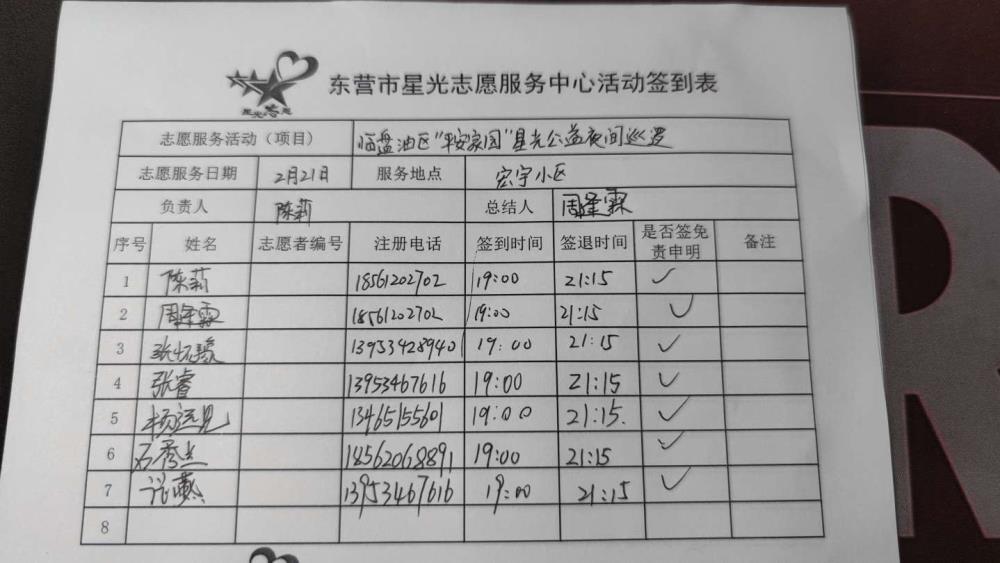 东营市星光志愿服务中心活动签到表
星光志愿
志愿服务活动（项目） 临盘油区"平安家园"星光公益夜间巡逻
志愿服务日期 2月21日 服务地点 宏宇小区
负责人 陈莉 总结人 周逢霖
序号 姓名 志愿者编号 注册电话 签到时间 签退时间 是否签免责申明 备注
1 陈莉 18561202702 19:00 21:15 ✓
2 周逢霖 18561202702 19:00 21:15 ✓
3 13953428940 19:00 21:15 ✓
4 张睿 13953467616 19:00 21:15 ✓
5 杨远见 13465155601 19:00 21:15. ✓
6 石秀杰 18562068891 19:00 21:15 ✓
7 13953467616 19:00 21:15 ✓
8